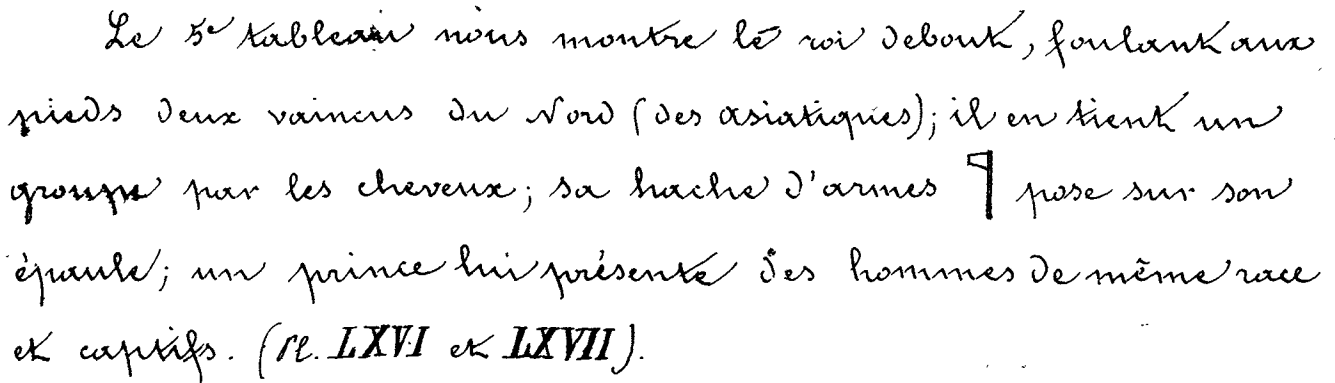 Le 5e tableau nous montre le roi debout, foulant aux
pieds deux vaincus du Nord (des asiatiques); il en tient un
groupe par les cheveux; sa hache d'armes 𓊹 pose sur son
épaule; un prince lui présente des hommes de même race
et captifs. (Pl. LXVI et LXVII).